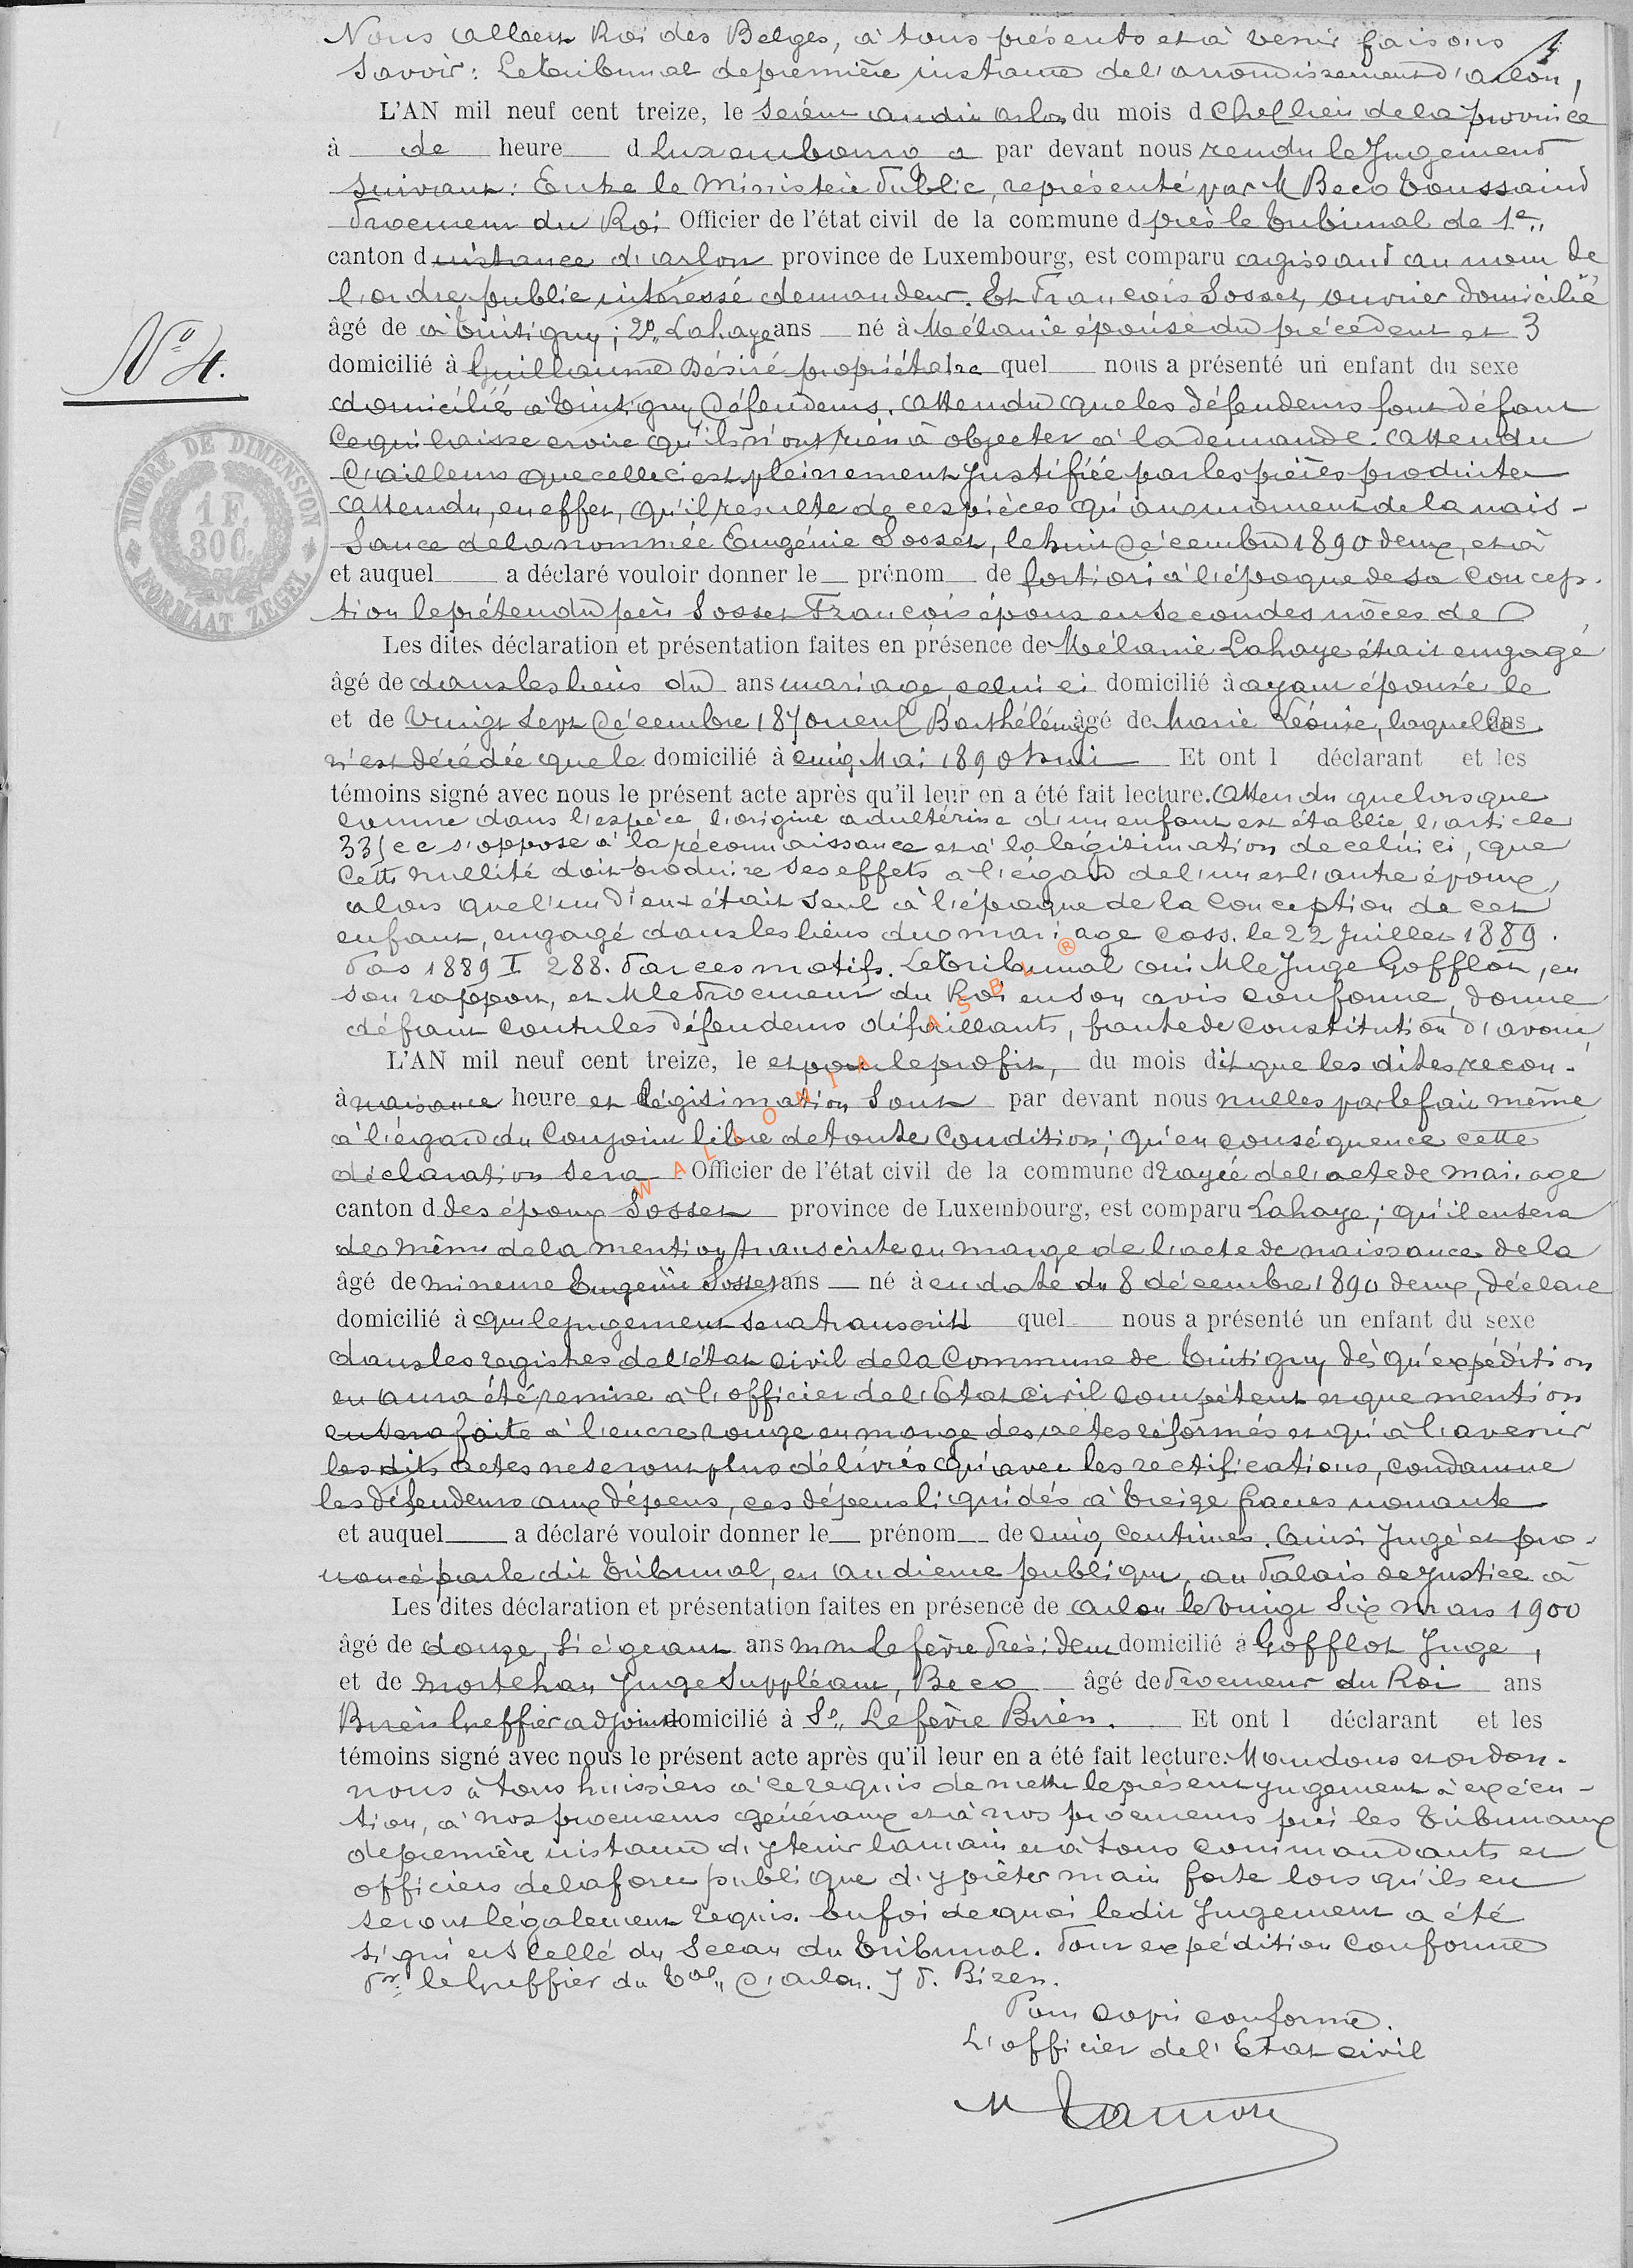 Nous Albert Roi des Belges, à tous présents et à venir faisons
4
Savoir: Le tribunal de première instance de l'arrondissement d'Arlon,
L'AN mil neuf cent treize, le séant audit Arlon du mois d Chef lieu de la province
à de heure d Luxembourg a par devant nous rendu le Jugement
suivant: Entre le Ministère Public, représenté par M Beco Toussaint
Procureur du Roi Officier de l'état civil de la commune d près le tribunal de 1e
canton d instance d'Arlon province de Luxembourg, est comparu agissant au nom de
l'ordre public intéressé demandeur. Et François Sosset, ouvrier domicilié
N° 4.
âgé de à Tintigny; 2° Lahaye ans né à Mélanie épouse du précédent et 3
domicilié à Guillaume Désiré propriétaire quel nous a présenté un enfant du sexe
domiciliés à Tintigny Défendeurs. Attendu que les défendeurs font défaut
Ce qui laisse croire qu'ils n'ont rien à objecter à la demande. Attendu
d'ailleurs que celle ci est pleinement justifiée par les pièces produites
TIMBRE DE DIMENSION
1 F. 30 C.
FORMAAT ZEGEL
Attendu, en effet, qu'il résulte de ces pièces qu'au moment de la nais-
sance de la nommée Eugénie Sosset, le huit Décembre 1890 deux, et à
et auquel a déclaré vouloir donner le prénom de fortiori à l'époque de sa concep-
tion le prétendu père Sosset François époux en secondes nôces de
Les dites déclaration et présentation faites en présence de Mélanie Lahaye était engagé
âgé de dans les liens du ans mariage, celui ci domicilié à ayant épousé le
et de Vingt Sept Décembre 1870 neuf Barthélémy âgé de Marie Léonie, laquelle ans
n'est décédée que le domicilié à cinq Mai 1890 huit Et ont l déclarant et les
témoins signé avec nous le présent acte après qu'il leur en a été fait lecture. Attendu que lorsque
comme dans l'espèce l'origine adultérine d'un enfant est établie l'article
335 cc s'oppose à la reconnaissance et à la légitimation de celui ci, que
Cette nullité doit produire ses effets à l'égard de l'un et l'autre époux,
alors que l'un d'eux était seul à l'époque de la Conception de cet
enfant, engagé dans les liens du mariage Cass. le 22 Juillet 1889.
Pas 1889 I 288. Par ces motifs. Le Tribunal oui M le Juge Gofflot, en
son rapport, et M le Procureur du Roi en son avis conforme, donne
défaut contre les défendeurs défaillants, faute de constitution d'avoué
L'AN mil neuf cent treize, le et pour le profit, du mois dit que les dites recon-
à naissance heure et légitimation sont par devant nous nulles par le fait même
à l'égard du Conjoint libre de toute Condition; qu'en conséquence cette
déclaration sera Officier de l'état civil de la commune d rayée de l'acte de mariage
canton d des époux Sosset province de Luxembourg, est comparu Lahaye; qu'il en sera
de même de la mention transcrite en marge de l'acte de naissance de la
âgé de mineure Eugénie Sosset ans né à en date du 8 décembre 1890 deux, déclare
domicilié à que le jugement sera transcrit quel nous a présenté un enfant du sexe
dans les registres de l'état civil de la Commune de Tintigny dès qu'expédition
en aura été remise à l'officier de l'Etat civil compétent et que mention
en sera faite à l'encre rouge en marge des actes réformés et qu'à l'avenir
les dits actes ne seront plus délivrés qu'avec les rectifications, condamne
les défendeurs aux dépens, ces dépens liquidés à treize francs nonante
et auquel a déclaré vouloir donner le prénom de cinq centimes. Ainsi Jugé et pro-
noncé par le dit tribunal, en audience publique, au Palais de justice à
Les dites déclaration et présentation faites en présence de Arlon le Vingt Six mars 1900
âgé de douze, Siégeant ans MM Lefèvre Président domicilié à Gofflot Juge,
et de Mortehan Juge Suppléant, Beco âgé de Procureur du Roi ans
Biren Greffier adjoint domicilié à Sé Lefèvre Biren. Et ont l déclarant et les
témoins signé avec nous le présent acte après qu'il leur en a été fait lecture. Mandons et ordon-
nons à tous huissiers à ce requis de mettre le présent jugement à exécu-
tion, à nos procureurs généraux et à nos procureurs près les tribunaux
de première instance d'y tenir la main et à tous commandants et
officiers de la force publique d'y prêter main forte lorsqu'ils en
seront légalement requis. En foi de quoi le dit Jugement a été
signé et scellé du Sceau du tribunal. Pour expédition conforme
Pr le Greffier du Tal d'Arlon. J P. Bizen.
Pour copie conforme.
L'officier de l'Etat civil
WALLONIA ASBL ®